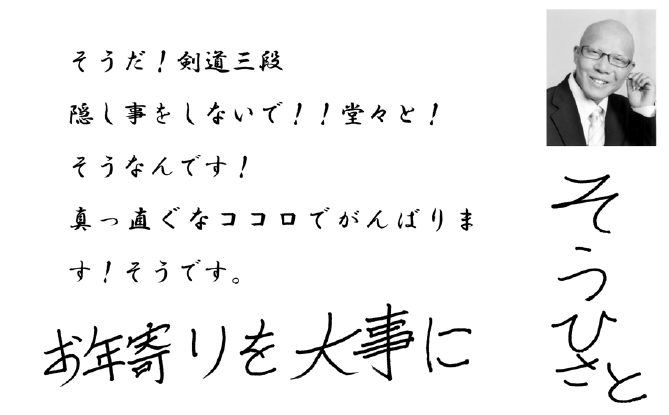 そうだ！剣道三段
隠し事をしないで！！堂々と！
そうなんです！
真っ直ぐなココロでがんばりま
す！そうです。
お年寄りを大事に
そうひさと